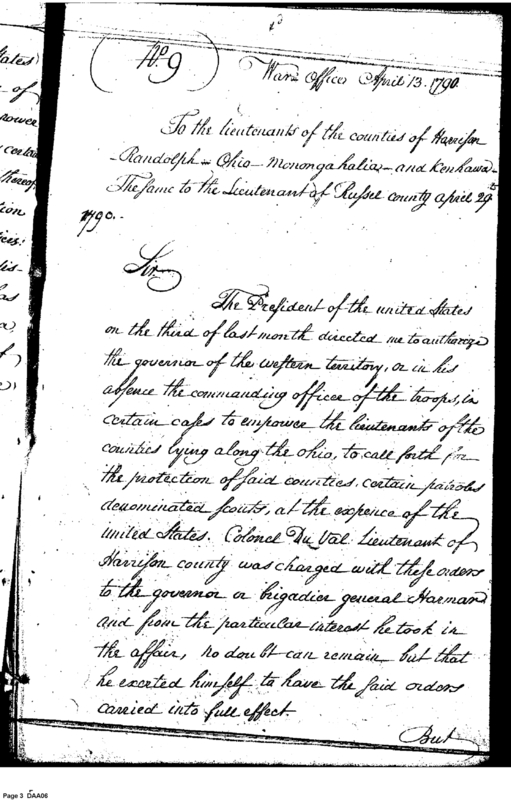 tates)
of
power
certain
thereof
tion
ices:
dis-
has
a,
f
e)
(No 9)
War Office April 13. 1790.
To the lieutenants of the counties of Harrison
- Randolph - Ohio - Monongahalia - and Kenhawa -
The same to the Lieutenant of Russel county april 29th
1790. -
Sir
The President of the united States
on the third of last month directed me to authorize
the governor of the western territory, or in his
absence the commanding officer of the troops, in
certain cases to empower the lieutenants of the
counties lying along the ohio, to call forth for
the protection of said counties, certain patroles
denominated scouts, at the expence of the
united States. Colonel Du Val Lieutenant of
Harrison county was charged with these orders
to the governor or brigadier general Harmar
and from the particular interest he took in
the affair, no doubt can remain but that
he exerted himself to have the said orders
carried into full effect.
But
Page 3 DAA06